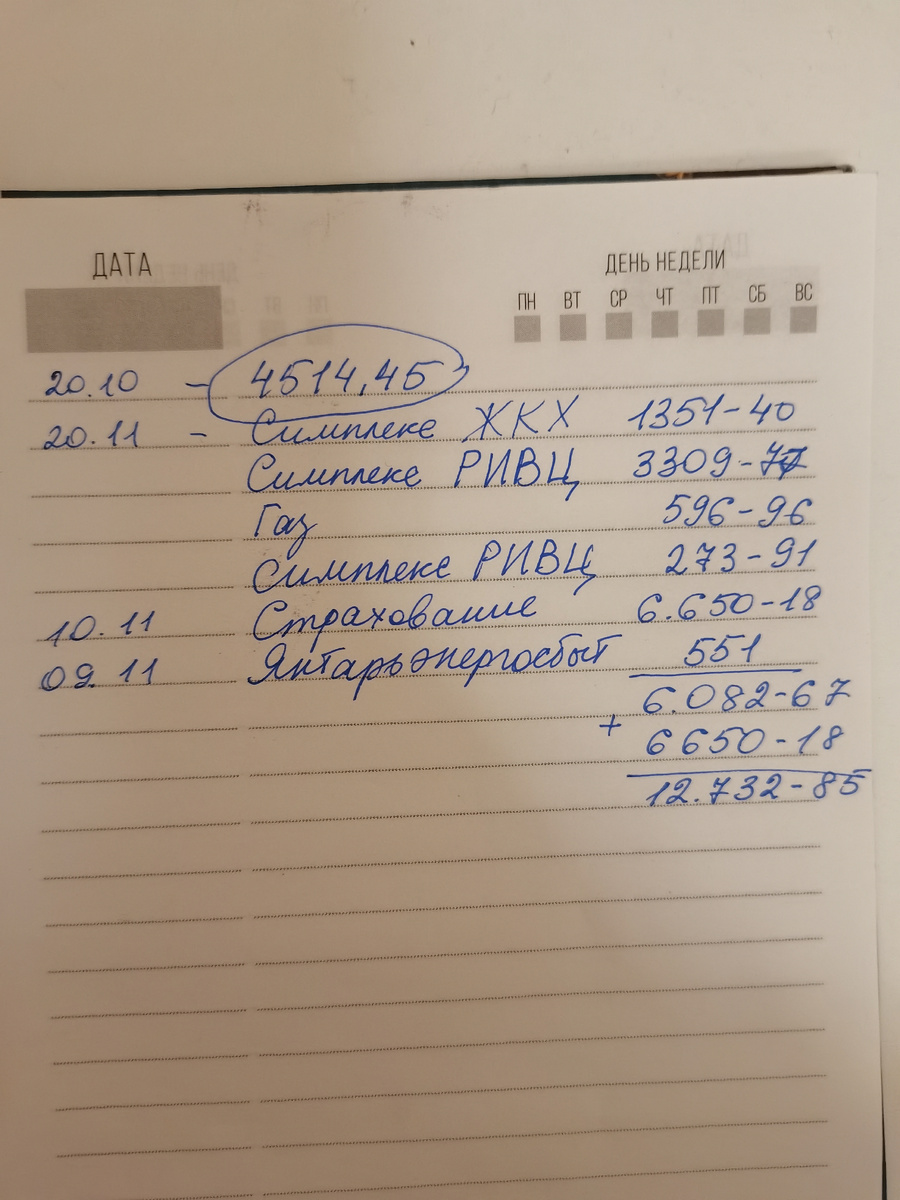 ДАТА
ДЕНЬ НЕДЕЛИ
ПН ВТ СР ЧТ ПТ СБ ВС
20.10 - 4514,45
20.11 - Симплекс ЖКХ 1351-40
Симплекс РИВЦ 3309-77
Газ 596-96
Симплекс РИВЦ 273-91
10.11 Страхование 6.650-18
09.11 Янтарьэнергосбыт 551
6.082-67
+ 6650-18
12.732-85